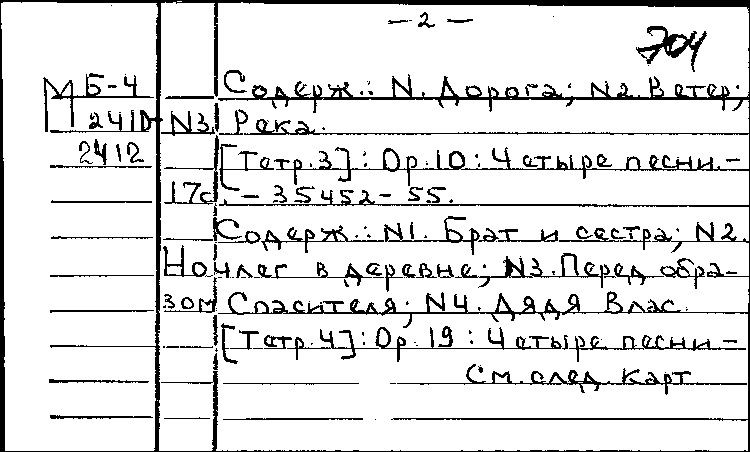 — 2 —
704
М Б-4 Содерж.: N. Дорога; N2. Ветер;
2410- N3. Река.
2412 [Тетр. 3]: Op. 10: Четыре песни. –
17с. – 35452-55.
Содерж.: N1. Брат и сестра; N2.
Ночлег в деревне; N3. Перед обра-
зом Спасителя; N4. Дядя Влас.
[Тетр. 4]: Op. 19: Четыре песни –
См. след. карт